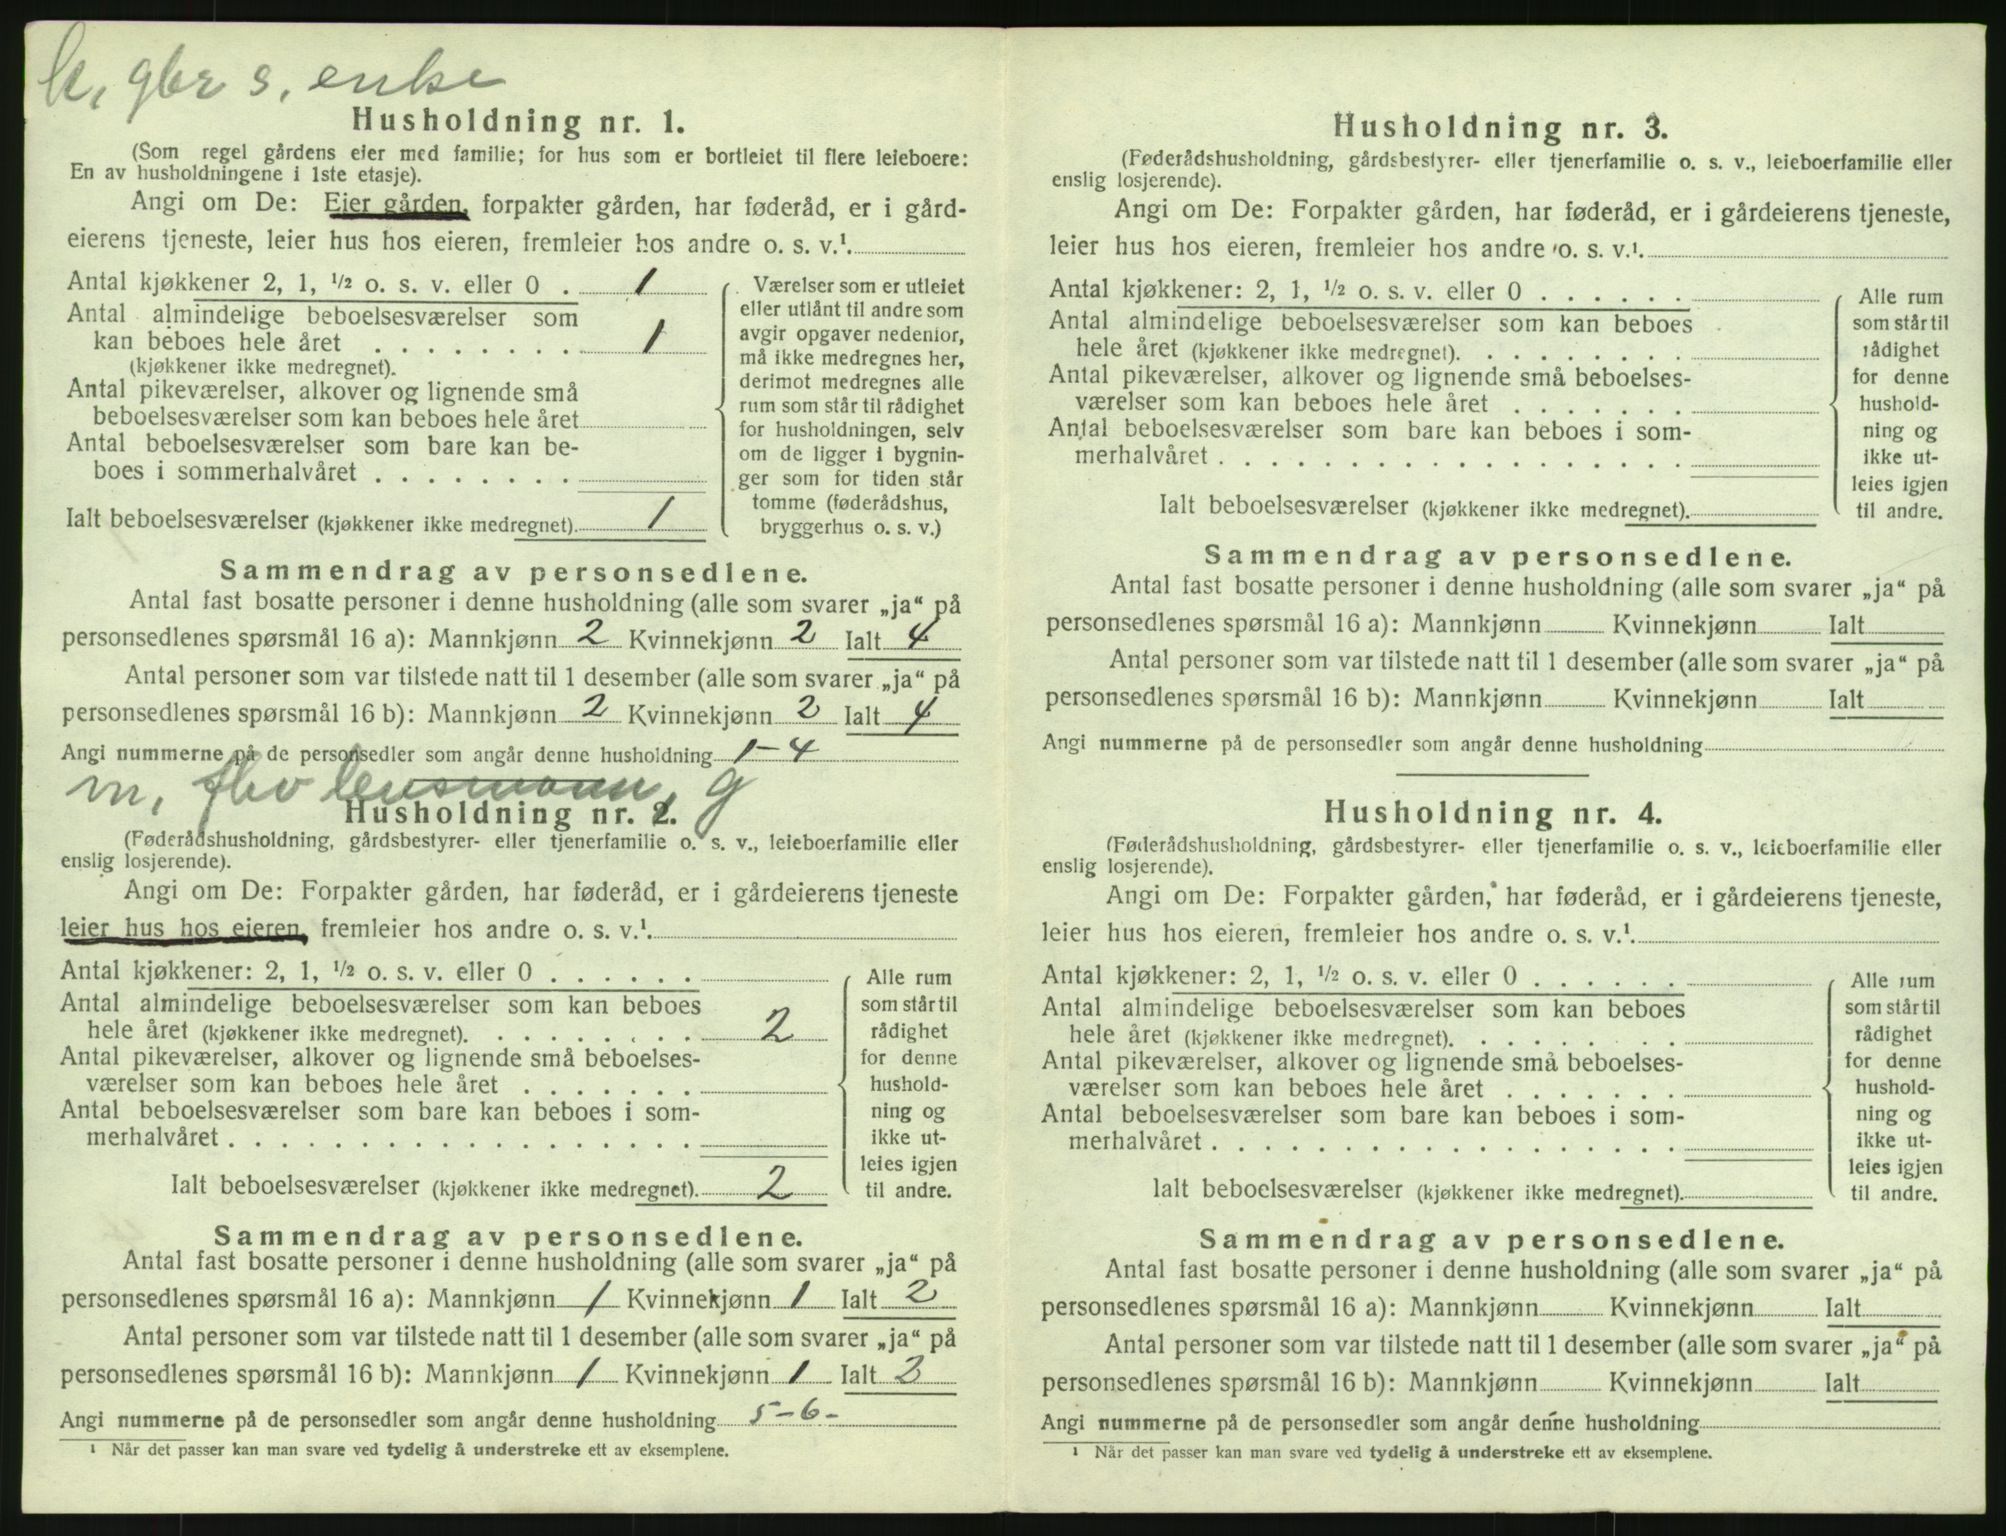 k, gbr s, enke
Husholdning nr. 1.
(Som regel gårdens eier med familie; for hus som er bortleiet til flere leieboere:
En av husholdningene i 1ste etasje).
Angi om De: Eier gården, forpakter gården, har føderåd, er i gård-
eierens tjeneste, leier hus hos eieren, fremleier hos andre o. s. v.¹.
Antal kjøkkener 2, 1, 1/2 o. s. v. eller 0 . 1
Antal almindelige beboelsesværelser som
kan beboes hele året . . . . . . . . 1
(kjøkkener ikke medregnet).
Antal pikeværelser, alkover og lignende små
beboelsesværelser som kan beboes hele året
Antal beboelsesværelser som bare kan be-
boes i sommerhalvåret . . . . . . . .
Ialt beboelsesværelser (kjøkkener ikke medregnet). 1
Værelser som er utleiet
eller utlånt til andre som
avgir opgaver nedenfor,
må ikke medregnes her,
derimot medregnes alle
rum som står til rådighet
for husholdningen, selv
om de ligger i bygnin-
ger som for tiden står
tomme (føderådshus,
bryggerhus o. s. v.)
Sammendrag av personsedlene.
Antal fast bosatte personer i denne husholdning (alle som svarer „ja“ på
personsedlenes spørsmål 16 a): Mannkjønn 2 Kvinnekjønn 2 Ialt 4
Antal personer som var tilstede natt til 1 desember (alle som svarer „ja“ på
personsedlenes spørsmål 16 b): Mannkjønn 2 Kvinnekjønn 2 Ialt 4
Angi nummerne på de personsedler som angår denne husholdning 1-4
m, fhv lensmann, g
Husholdning nr. 2.
(Føderådshusholdning, gårdsbestyrer- eller tjenerfamilie o. s. v., leieboerfamilie eller
enslig losjerende).
Angi om De: Forpakter gården, har føderåd, er i gårdeierens tjeneste
leier hus hos eieren, fremleier hos andre o. s. v.¹.
Antal kjøkkener: 2, 1, 1/2 o. s. v. eller 0 . . . . . .
Antal almindelige beboelsesværelser som kan beboes
hele året (kjøkkener ikke medregnet). . . . . . . . . 2
Antal pikeværelser, alkover og lignende små beboelses-
værelser som kan beboes hele året . . . . . . .
Antal beboelsesværelser som bare kan beboes i som-
merhalvåret . . . . . . . . . . . . . . . . . .
Ialt beboelsesværelser (kjøkkener ikke medregnet). 2
Alle rum
som står til
rådighet
for denne
hushold-
ning og
ikke ut-
leies igjen
til andre.
Sammendrag av personsedlene.
Antal fast bosatte personer i denne husholdning (alle som svarer „ja“ på
personsedlenes spørsmål 16 a): Mannkjønn 1 Kvinnekjønn 1 Ialt 2
Antal personer som var tilstede natt til 1 desember (alle som svarer „ja“ på
personsedlenes spørsmål 16 b): Mannkjønn 1 Kvinnekjønn 1 Ialt 2
Angi nummerne på de personsedler som angår denne husholdning 5-6-
¹ Når det passer kan man svare ved tydelig å understreke ett av eksemplene.
Husholdning nr. 3.
(Føderådshusholdning, gårdsbestyrer- eller tjenerfamilie o. s. v., leieboerfamilie eller
enslig losjerende).
Angi om De: Forpakter gården, har føderåd, er i gårdeierens tjeneste,
leier hus hos eieren, fremleier hos andre o. s. v.¹.
Antal kjøkkener: 2, 1, 1/2 o. s. v. eller 0 . . . . . .
Antal almindelige beboelsesværelser som kan beboes
hele året (kjøkkener ikke medregnet). . . . . . . . .
Antal pikeværelser, alkover og lignende små beboelses-
værelser som kan beboes hele året . . . . . . .
Antal beboelsesværelser som bare kan beboes i som-
merhalvåret . . . . . . . . . . . . . . . . . .
Ialt beboelsesværelser (kjøkkener ikke medregnet).
Alle rum
som står til
rådighet
for denne
hushold-
ning og
ikke ut-
leies igjen
til andre.
Sammendrag av personsedlene.
Antal fast bosatte personer i denne husholdning (alle som svarer „ja“ på
personsedlenes spørsmål 16 a): Mannkjønn Kvinnekjønn Ialt
Antal personer som var tilstede natt til 1 desember (alle som svarer „ja“ på
personsedlenes spørsmål 16 b): Mannkjønn Kvinnekjønn Ialt
Angi nummerne på de personsedler som angår denne husholdning
Husholdning nr. 4.
(Føderådshusholdning, gårdsbestyrer- eller tjenerfamilie o. s. v., leieboerfamilie eller
enslig losjerende).
Angi om De: Forpakter gården, har føderåd, er i gårdeierens tjeneste,
leier hus hos eieren, fremleier hos andre o. s. v.¹.
Antal kjøkkener: 2, 1, 1/2 o. s. v. eller 0 . . . . . .
Antal almindelige beboelsesværelser som kan beboes
hele året (kjøkkener ikke medregnet). . . . . . . . .
Antal pikeværelser, alkover og lignende små beboelses-
værelser som kan beboes hele året . . . . . . .
Antal beboelsesværelser som bare kan beboes i som-
merhalvåret . . . . . . . . . . . . . . . . . .
Ialt beboelsesværelser (kjøkkener ikke medregnet).
Alle rum
som står til
rådighet
for denne
hushold-
ning og
ikke ut-
leies igjen
til andre.
Sammendrag av personsedlene.
Antal fast bosatte personer i denne husholdning (alle som svarer „ja“ på
personsedlenes spørsmål 16 a): Mannkjønn Kvinnekjønn Ialt
Antal personer som var tilstede natt til 1 desember (alle som svarer „ja“ på
personsedlenes spørsmål 16 b): Mannkjønn Kvinnekjønn Ialt
Angi nummerne på de personsedler som angår denne husholdning
¹ Når det passer kan man svare ved tydelig å understreke ett av eksemplene.